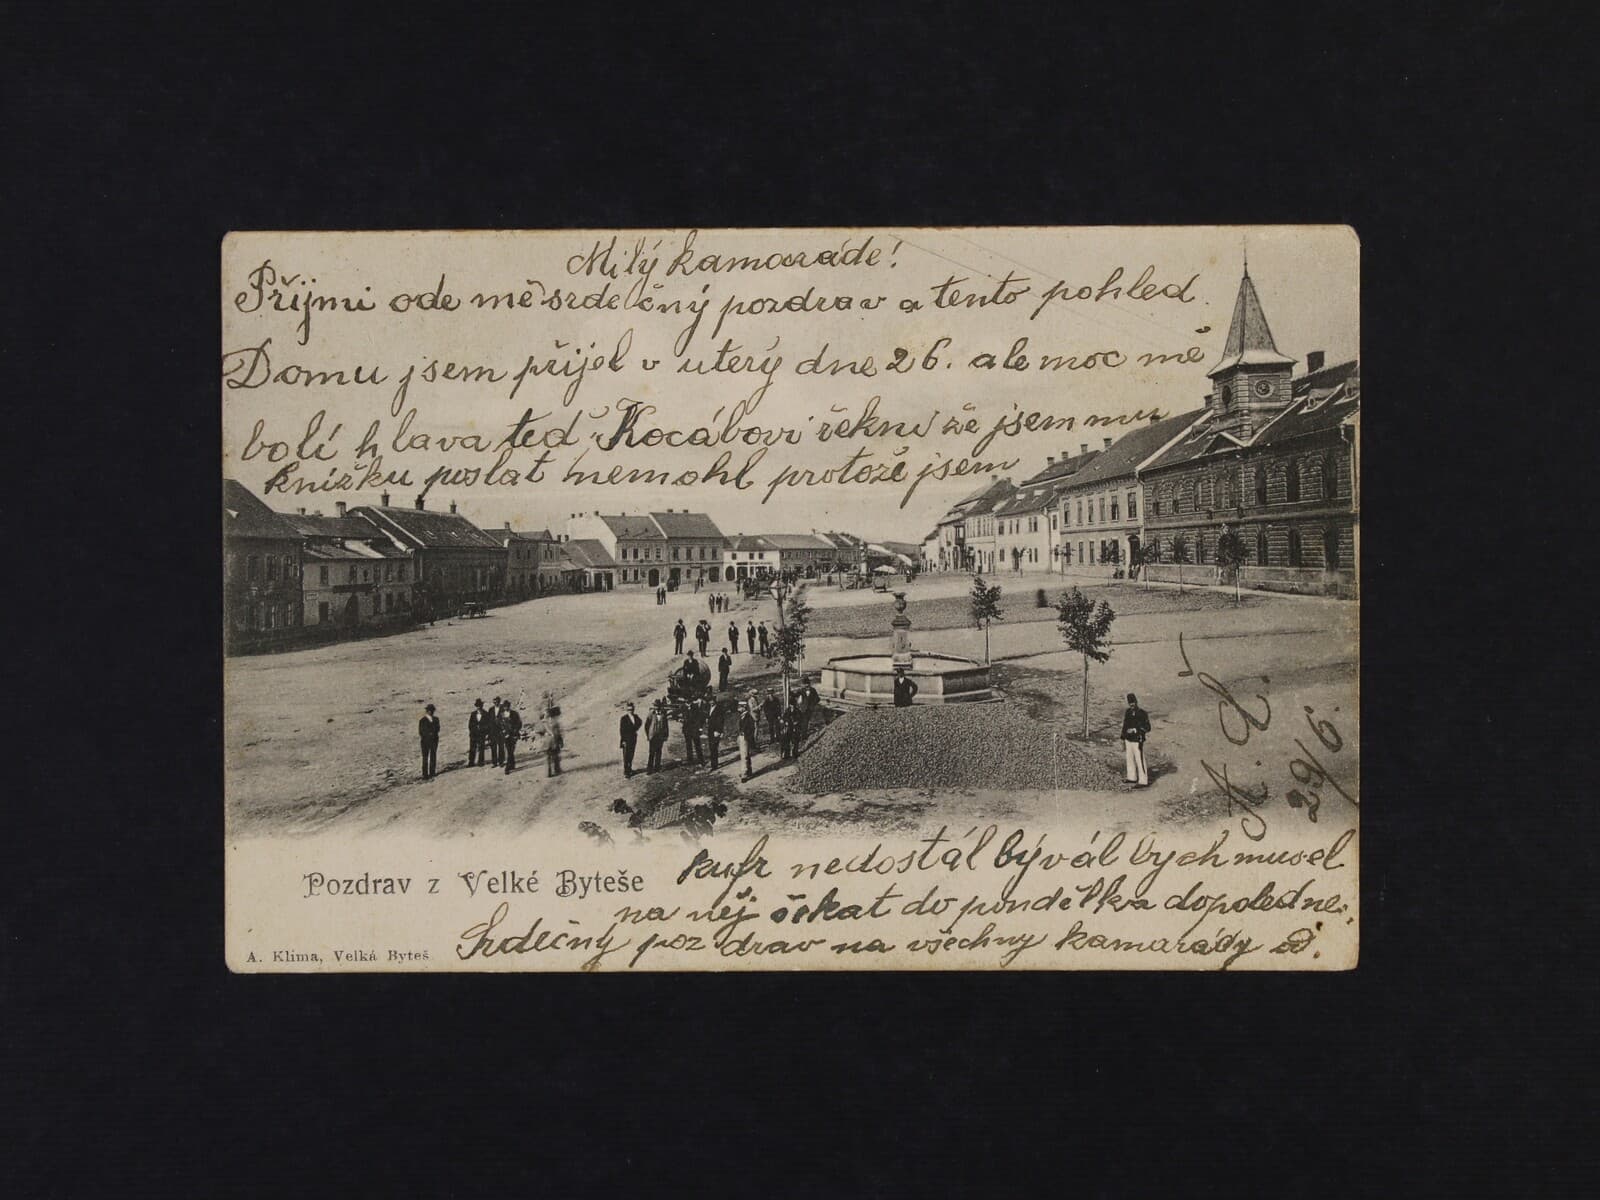 Milý kamaráde!
Příjmi ode mě srdečný pozdrav a tento pohled.
Domu jsem přijel v uterý dne 26. ale moc mě
bolí hlava teď Kocábovi řekni že jsem mu
knížku poslat nemohl protože jsem
kufr nedostál býval bych musel
na něj čekat do pondělka dopoledne.
Srdečný pozdrav na všechny kamarády od.
29/6.
Pozdrav z Velké Byteše
A. Klima, Velká Byteš